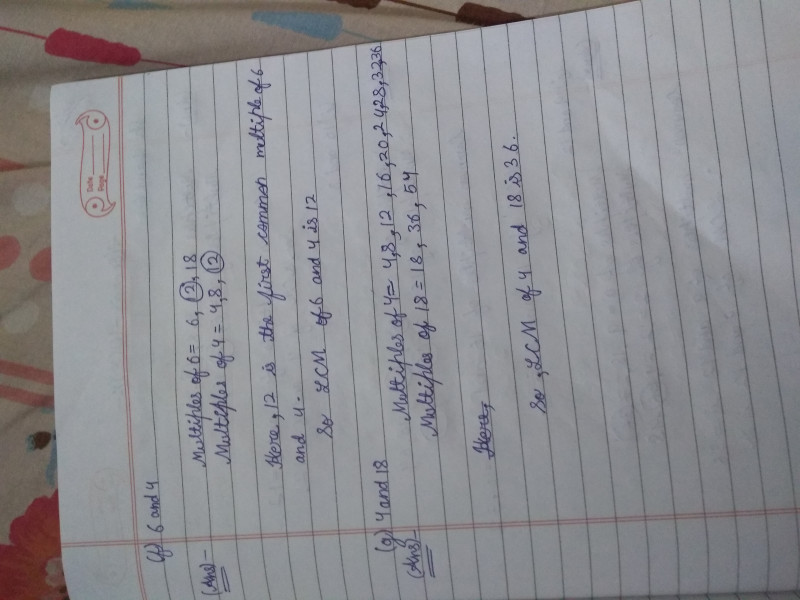 Date
Page
(f) 6 and 4
(Ans) - Multiples of 6 = 6, 12, 18
Multiples of 4 = 4, 8, 12
Here, 12 is the first common multiple of 6
and 4.
So LCM of 6 and 4 is 12
(g) 4 and 18
(Ans) - Multiples of 4 = 4, 8, 12, 16, 20, 24, 28, 32, 36
Multiples of 18 = 18, 36, 54
Here,
So, LCM of 4 and 18 is 36.